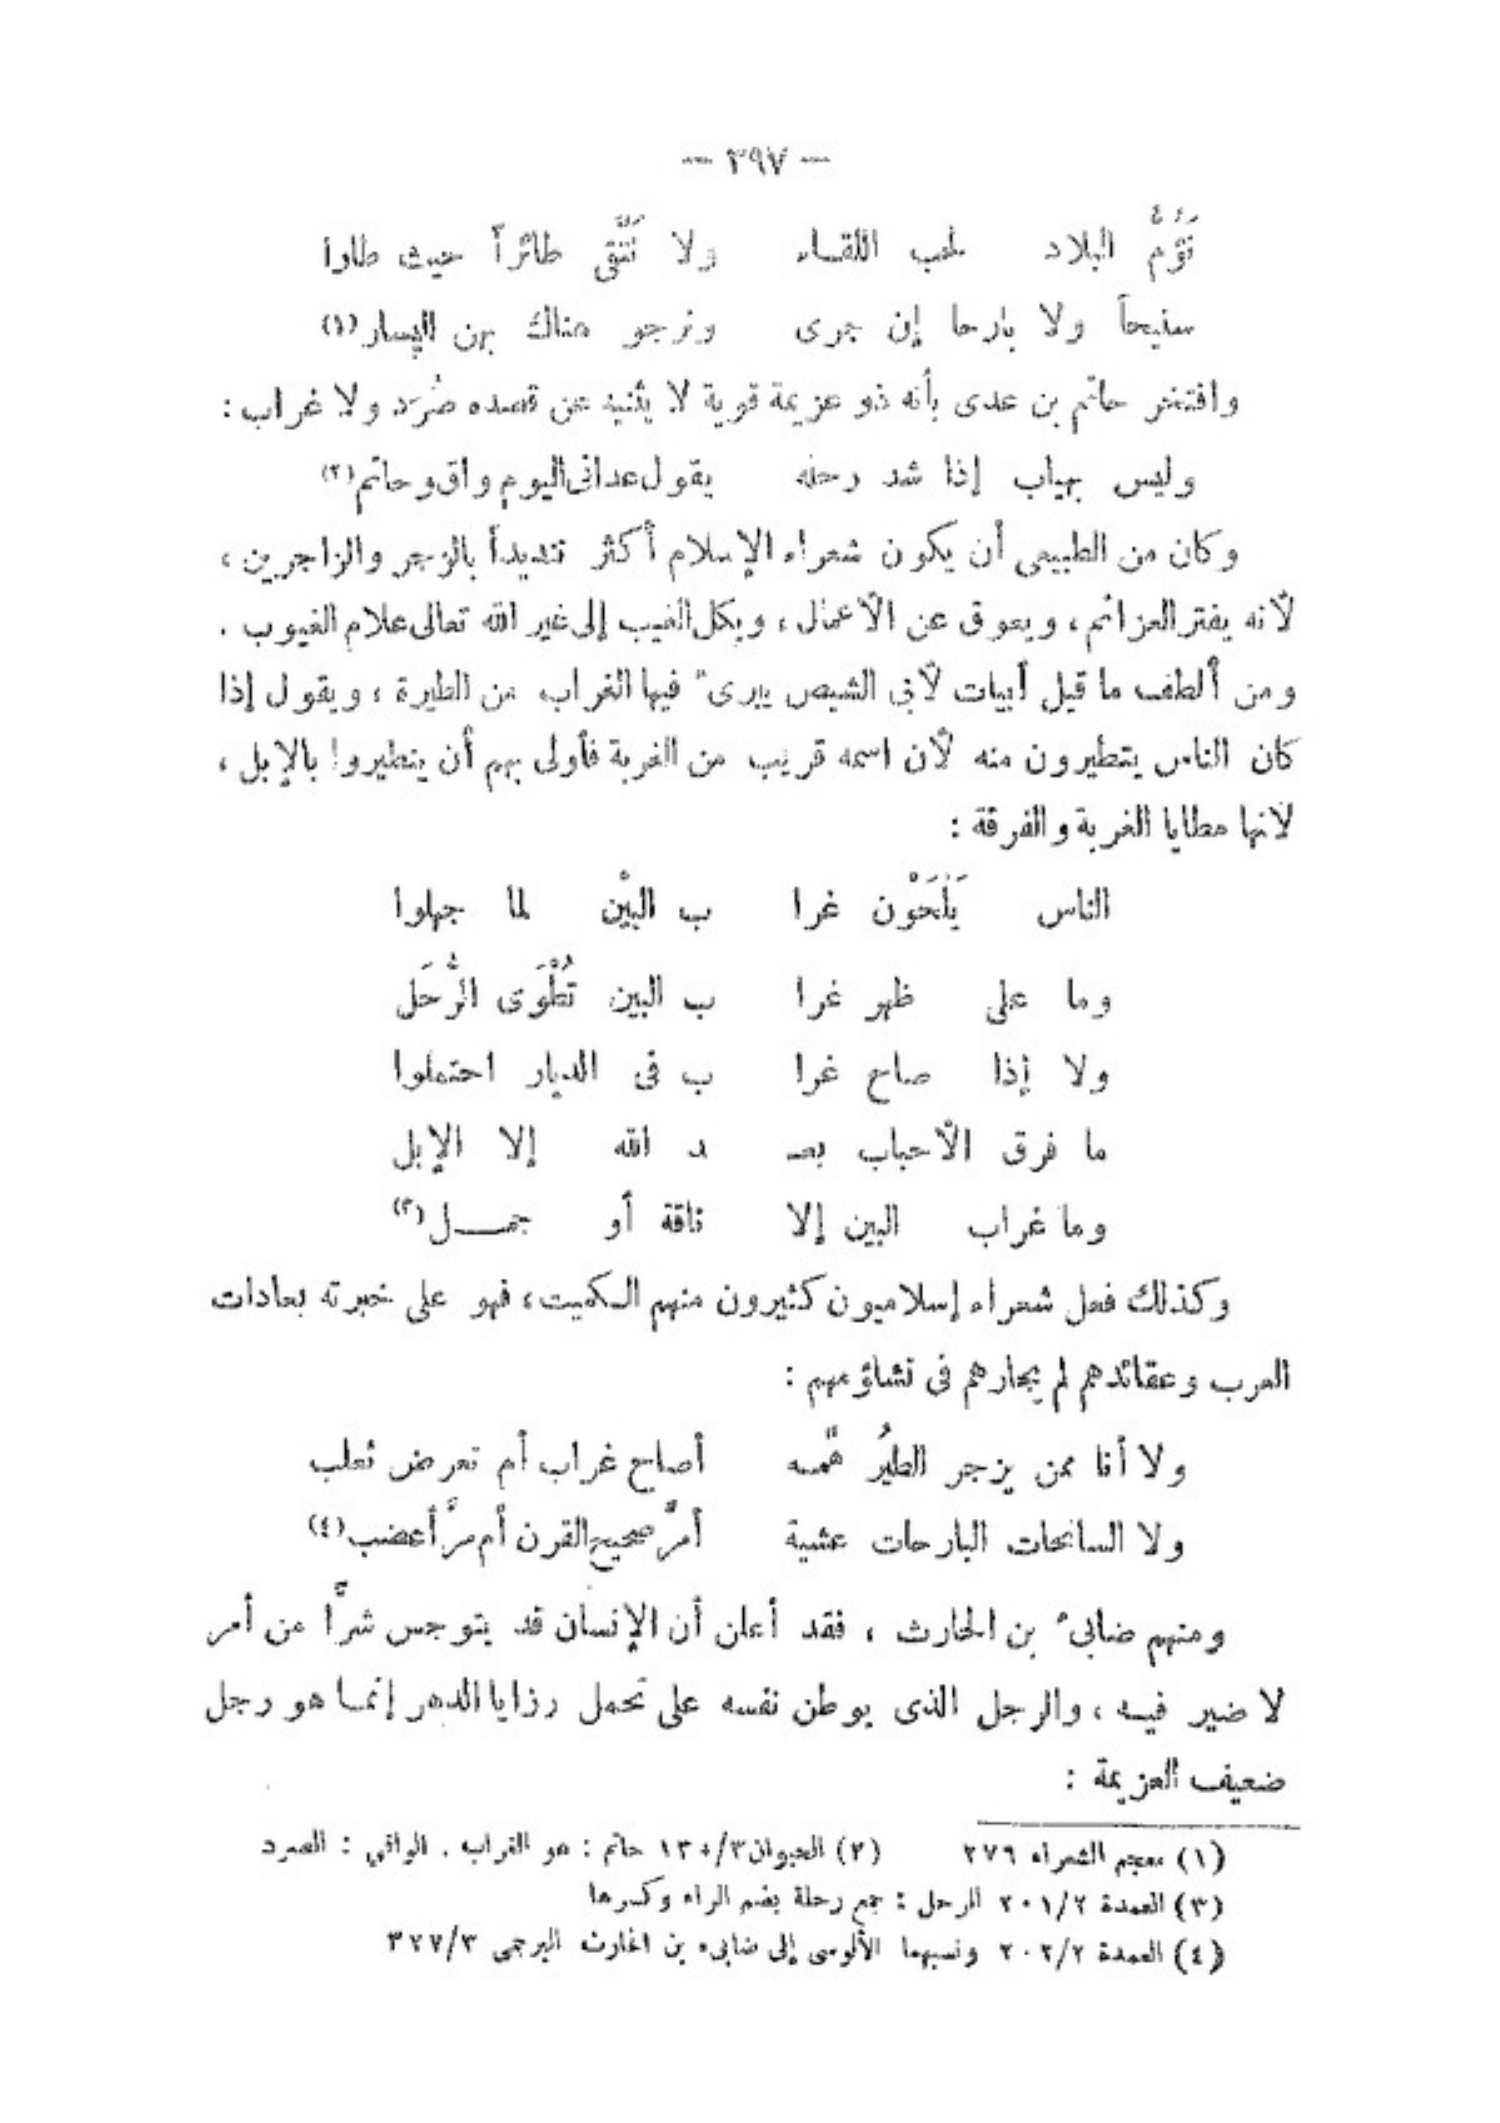 — ٣٩٧ —
نَؤُمُّ البلاد لحب اللقاء ولا نَتَّقى طائراً حيث طارا
سنيحاً ولا بارحا إن جرى ونرجو هناك بهن اليسار (١)
وافتخر حاتم بن عدى بأنه ذو عزيمة قوية لا يثنيه عن قصده صُرَد ولا غراب :
وليس بهياب إذا شد رحله يقول عدانى اليوم واق وحاتم (٢)
وكان من الطبيعى أن يكون شعراء الإسلام أكثر تنديداً بالزجر والزاجرين ،
لأنه يفتر العزائم ، ويعوق عن الأعمال ، ويكل الغيب إلى غير الله تعالى علام الغيوب .
ومن ألطف ما قيل أبيات لأبى الشيص يبرىء فيها الغراب من الطيرة ، ويقول إذا
كان الناس يتطيرون منه لأن اسمه قريب من الغربة فأولى بهم أن يتطيروا بالإبل ،
لأنها مطايا الغربة والفرقة :
الناس يَلْحَوْن غرا ب البيْن لما جهلوا
وما على ظهر غرا ب البين تُطْوَى الرُّحَل
ولا إذا صاح غرا ب فى الديار احتملوا
ما فرق الأحباب بعـ ـد الله إلا الإبل
وما غراب البين إلا ناقة أو جمـــل (٣)
وكذلك فعل شعراء إسلاميون كثيرون منهم الكميت ، فهو على خبرته بعادات
العرب وعقائدهم لم يجارهم فى تشاؤمهم :
ولا أنا ممن يزجر الطيُر همُّه أصاح غراب أم تعرض ثعلب
ولا السانحات البارحات عشية أمرَّ صحيح القرن أم مرَّ أعضب (٤)
ومنهم ضابىء بن الحارث ، فقد أعلن أن الإنسان قد يتوجس شرًّا من أمر
لا ضير فيه ، والرجل الذى يوطن نفسه على تحمل رزايا الدهر إنما هو رجل
ضعيف العزيمة :
(١) معجم الشعراء ٢٧٩ (٢) الحيوان ١٣٠/٣ حاتم : هو الغراب . الواقي : الصرد
(٣) العمدة ٢٠١/٢ الرحل : جمع رحلة بضم الراء وكسرها
(٤) العمدة ٢٠٢/٢ ونسبهما الألوسى إلى ضابىء بن الحارث البرجمى ٣٢٧/٣